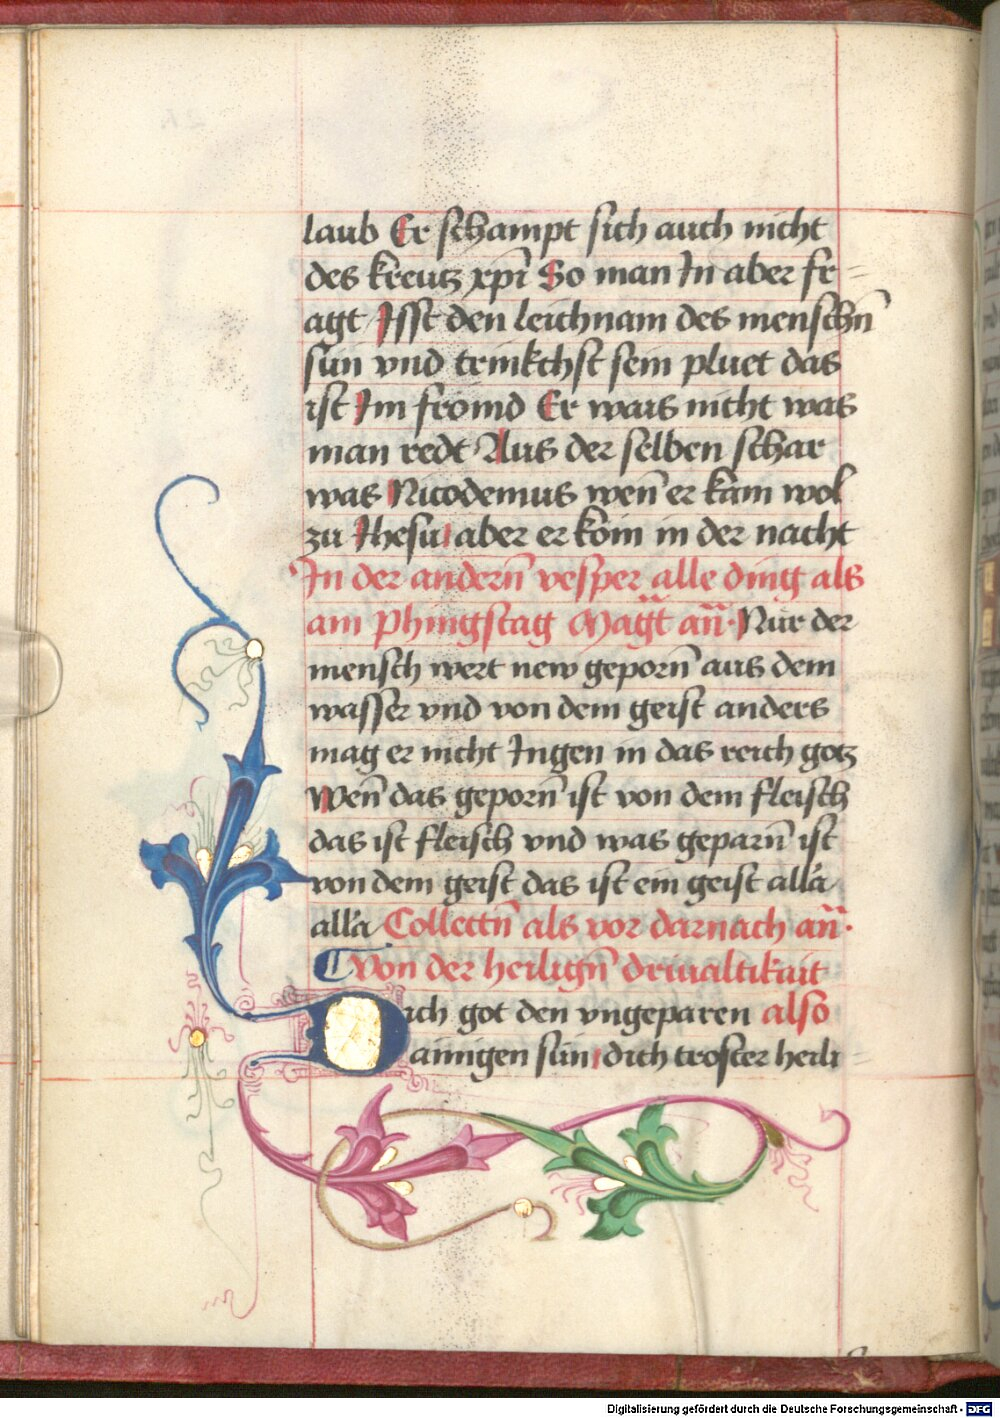 laub Er schampt sich auch nicht
des kreutz xpi So man In aber fr=
agt Isst den leichnam des menschn̄
sun vnd trinkchst sein pluet das
ist Im fromd Er wais nicht was
man redt Aus der selben schar
was Nicodemus wen̄ er kam wol
zu Ihesu aber er kom in der nacht
In der andern̄ vesper alle ding als
am Phingstag Magt̄ an̄· Nur der
mensch wert new geporn̄ aus dem
wasser vnd von dem geist anders
mag er nicht Ingen in das reich gotz
Wen̄ das geporn̄ ist von dem fleisch
das ist fleisch vnd was geparn̄ ist
von dem geist das ist ein geist alla
alla Collectn̄ als vor darnach an̄·
Von der heilign̄ driualtikait
Dich got den vngeparen also
ainigen sun dich troster heili=
Digitalisierung gefördert durch die Deutsche Forschungsgemeinschaft - DFG